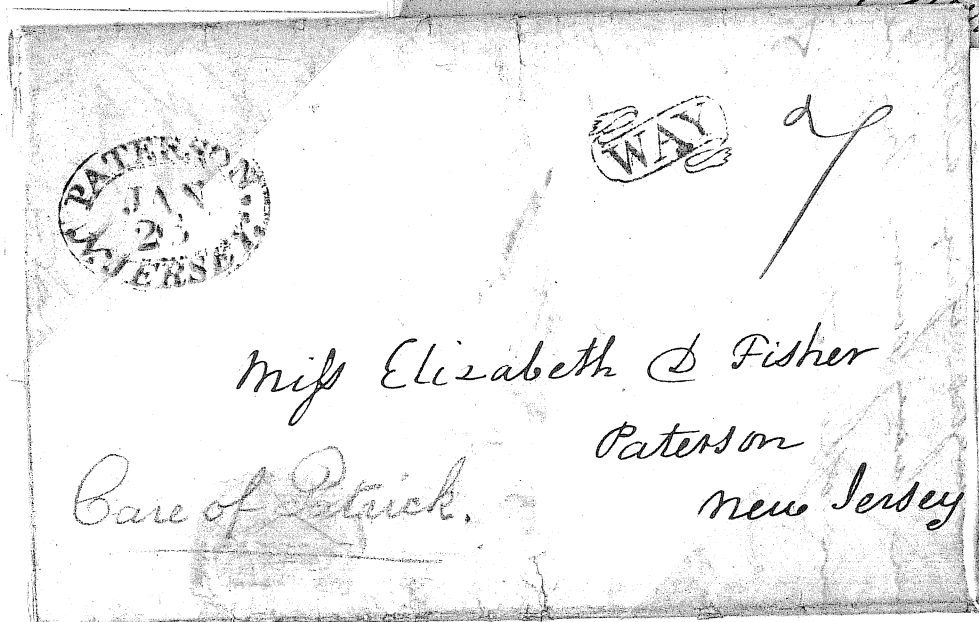 PATERSON
JAN
N. JERSEY.
WAY
7
Miſs Elizabeth D Fisher
Paterson
New Jersey
Care of Patrick.